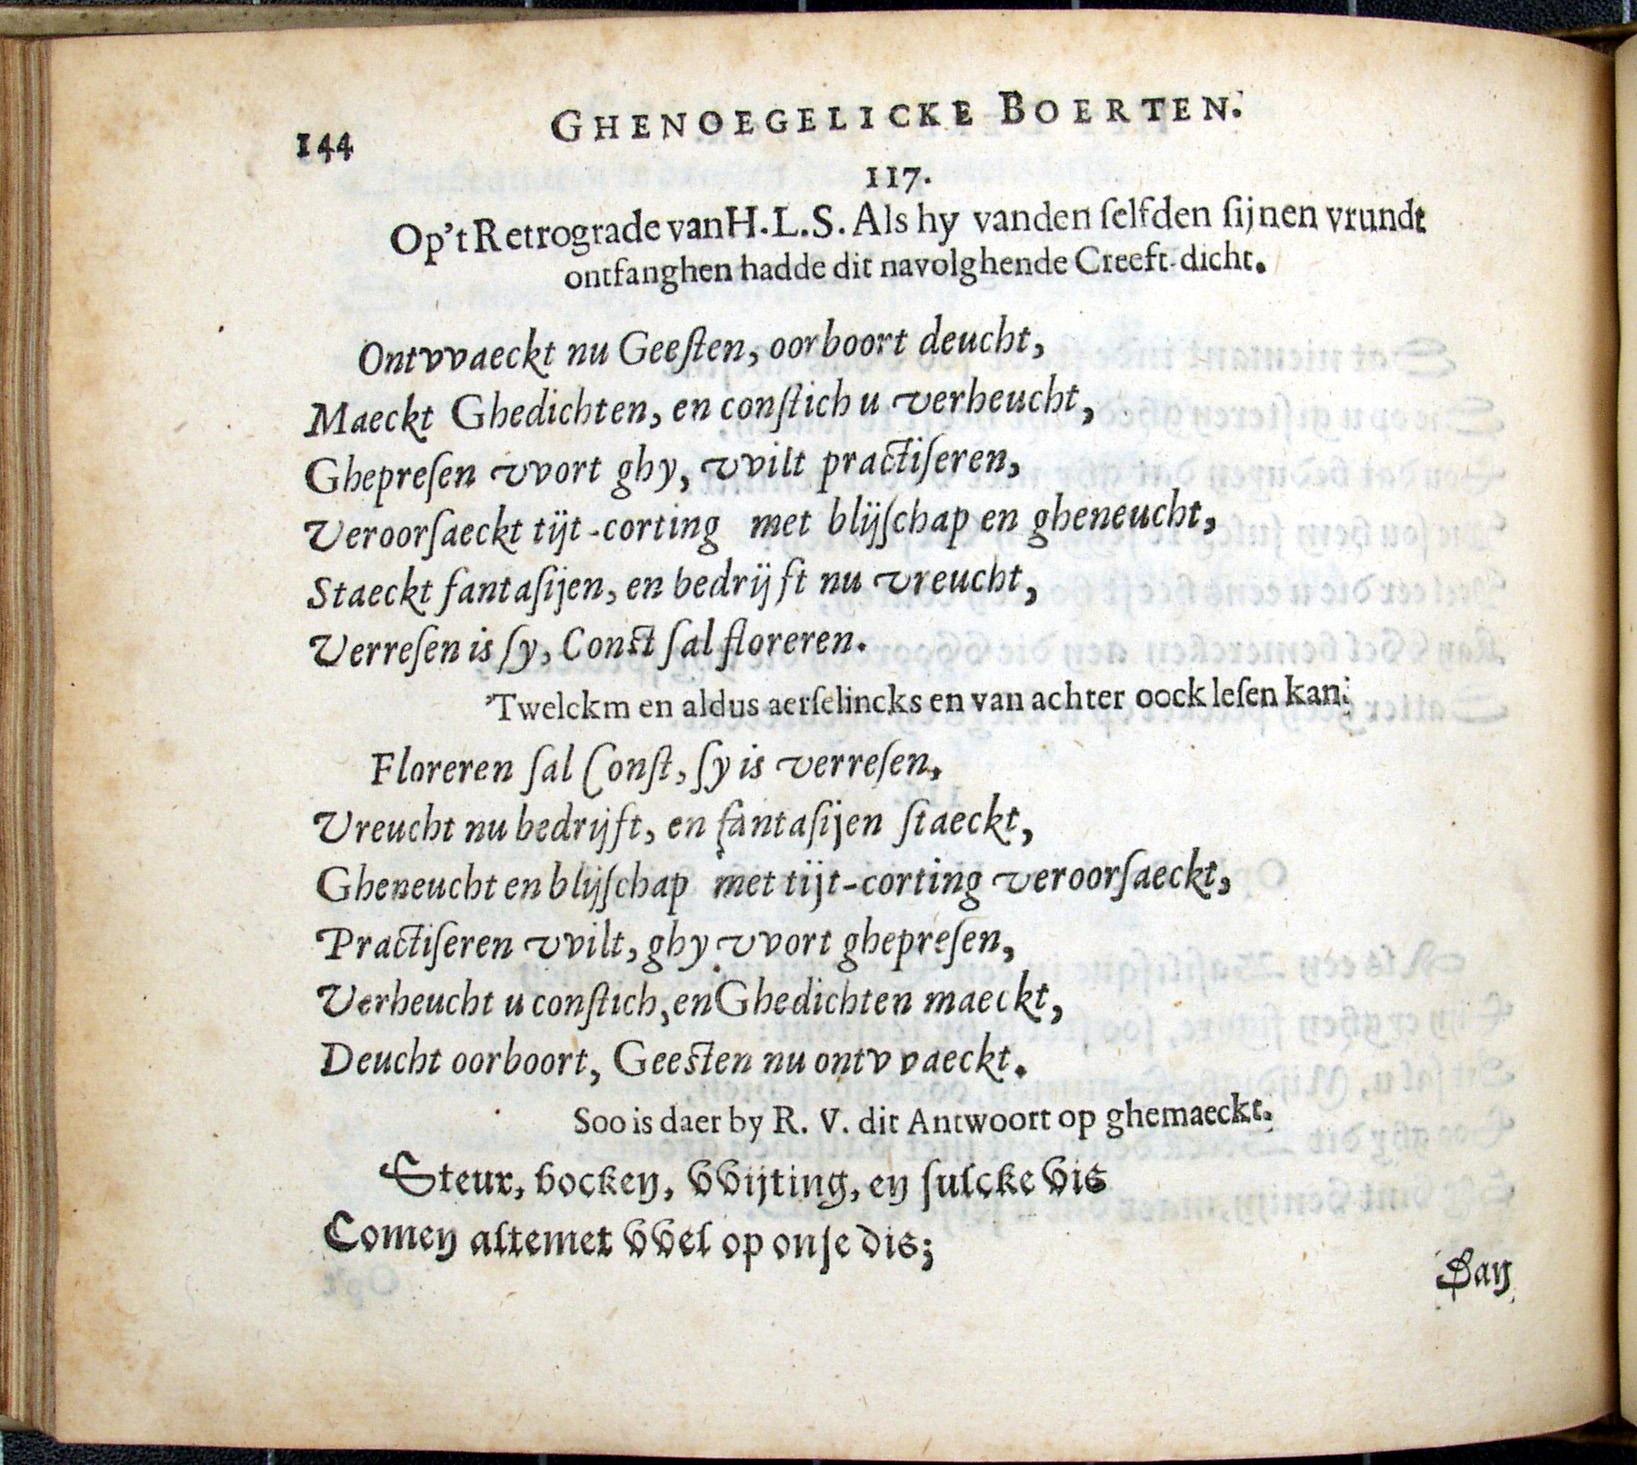 144
GHENOEGELICKE BOERTEN.
117.
Op't Retrograde van H.L.S. Als hy vanden ſelfden ſijnen vrundt
ontfanghen hadde dit navolghende Creeft-dicht.
Ontvvaeckt nu Geeſten, oorboort deucht,
Maeckt Ghedichten, en conſtich u verheucht,
Ghepreſen vvort ghy, vvilt practiſeren,
Veroorſaeckt tijt-corting met blijſchap en gheneucht,
Staeckt fantaſijen, en bedrijft nu vreucht,
Verreſen is ſy, Conſt ſal floreren.
'Twelckm en aldus aerſelincks en van achter oock leſen kan.
Floreren ſal Conſt, ſy is verreſen,
Vreucht nu bedrijft, en fantaſijen ſtaeckt,
Gheneucht en blijſchap met tijt-corting veroorſaeckt,
Practiſeren vvilt, ghy vvort ghepreſen,
Verheucht u conſtich, en Ghedichten maeckt,
Deucht oorboort, Geeſten nu ontvvaeckt.
Soo is daer by R. V. dit Antwoort op ghemaeckt.
Steur, bocken, VVijting, en ſulcke vis
Comen altemet VVel op onſe dis;
Dan